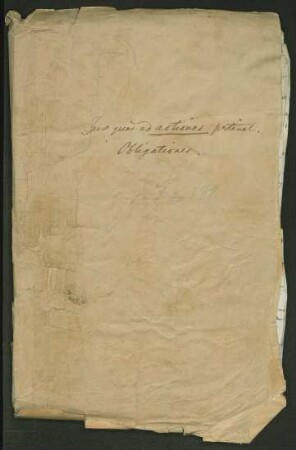 Jus quod ad actiones pertinet.
Obligationes.